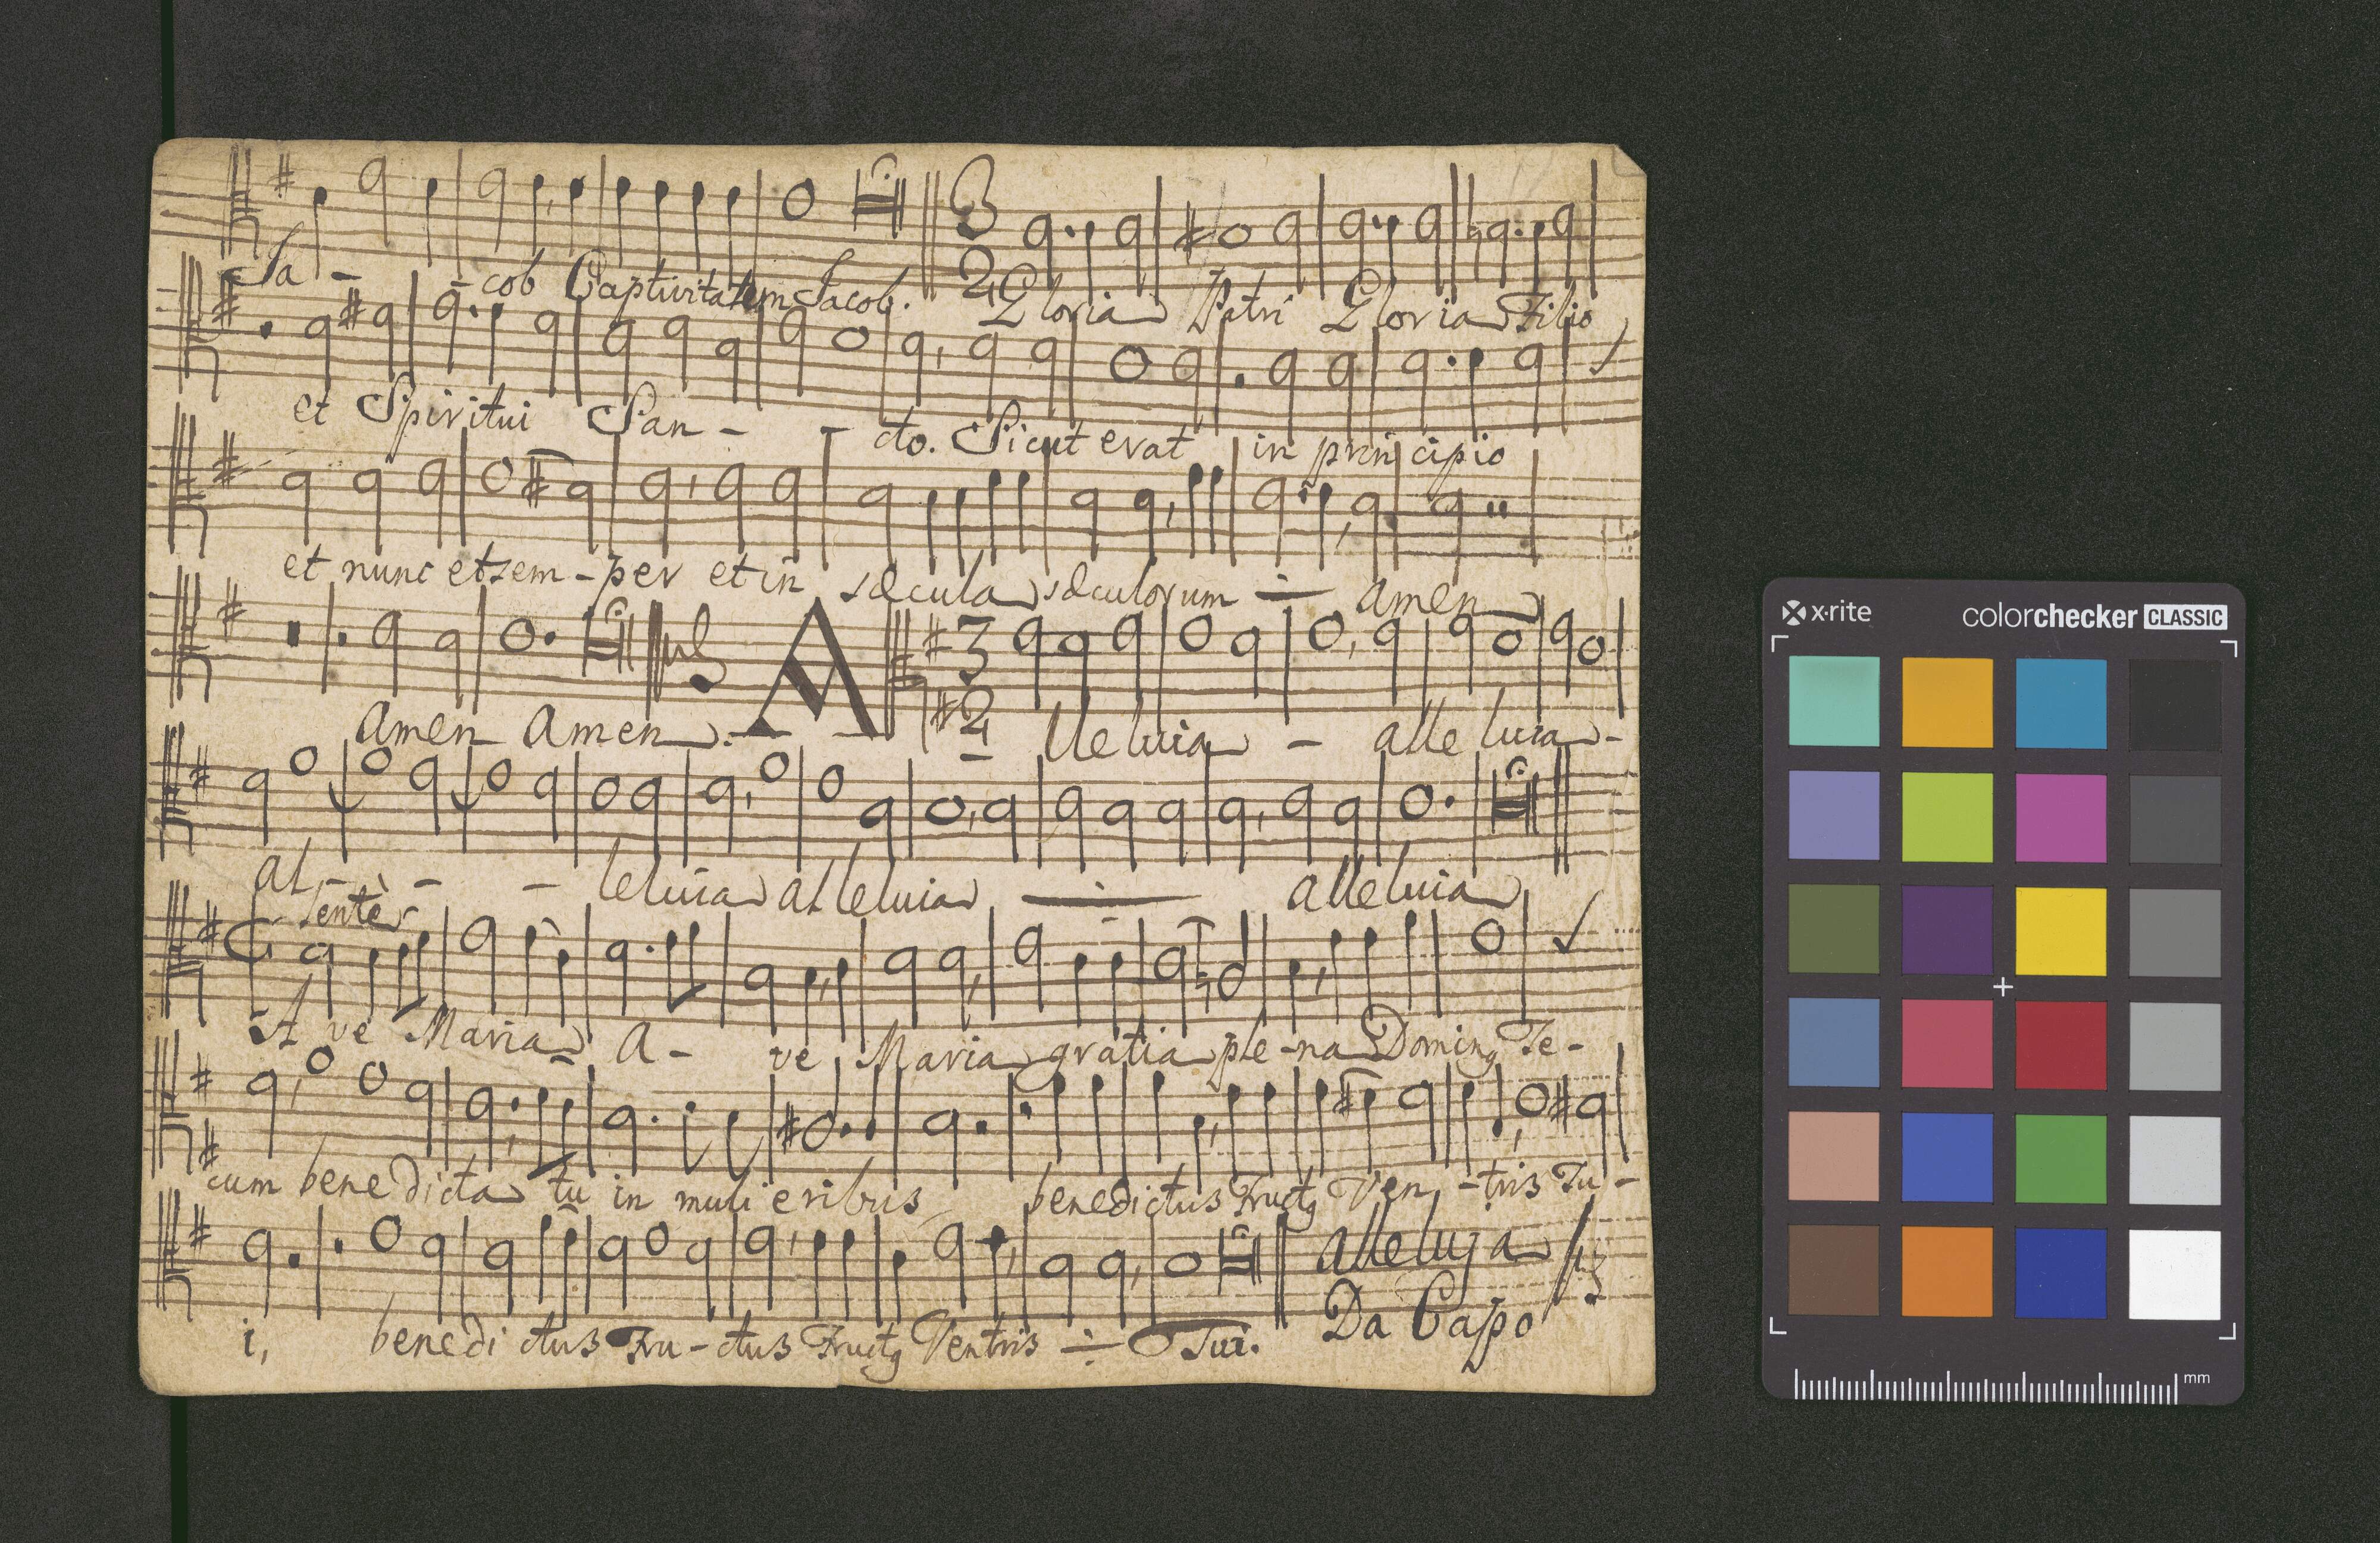 Ja - - cob Captivitatem Jacob. Gloria Patri Gloria Filio
3
2
et Spiritui San - - cto. Sicut erat in principio
et nunc et sem - per et in sæcula sæculorum ÷ amen
amen amen. A lleluia - alleluia -
3
2
al - - - leluia alleluia ÷ alleluia
Lentè
A ve Maria A - ve Maria gratia ple - na Dominꝯ Te -
cum benedicta tu in mulieribus benedictus Fructꝯ Ven - tris Tu -
i, benedi ctus Fru - ctus Fructꝯ Ventris ÷ Tui.
alleluja
Da Capo
x·rite colorchecker CLASSIC
mm